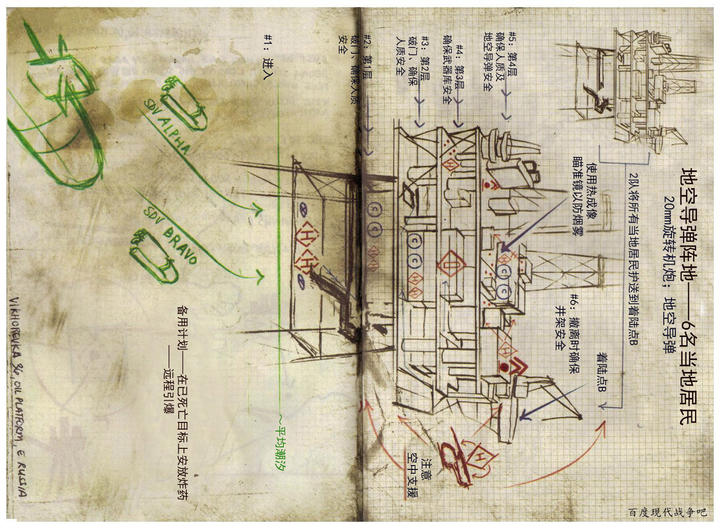 地空导弹阵地——6名当地居民
20mm旋转机炮；地空导弹
2队将所有当地居民护送到着陆点B
使用热成像
瞄准镜以防烟雾
着陆点B
#6：撤离时确保
井架安全
#5：第4层
确保人质及
地空导弹安全
#4：第3层
确保武器库安全
#3：第2层
破门、确保
人质安全
#2：第1层
破门、确保人质
安全
#1：进入
注意
空中支援
SDV ALPHA
SDV BRAVO
～平均潮汐
备用计划
——在已死亡目标上安放炸药
——远程引爆
VIKHOREVKA 36 OIL PLATFORM, E RUSSIA
百度现代战争吧